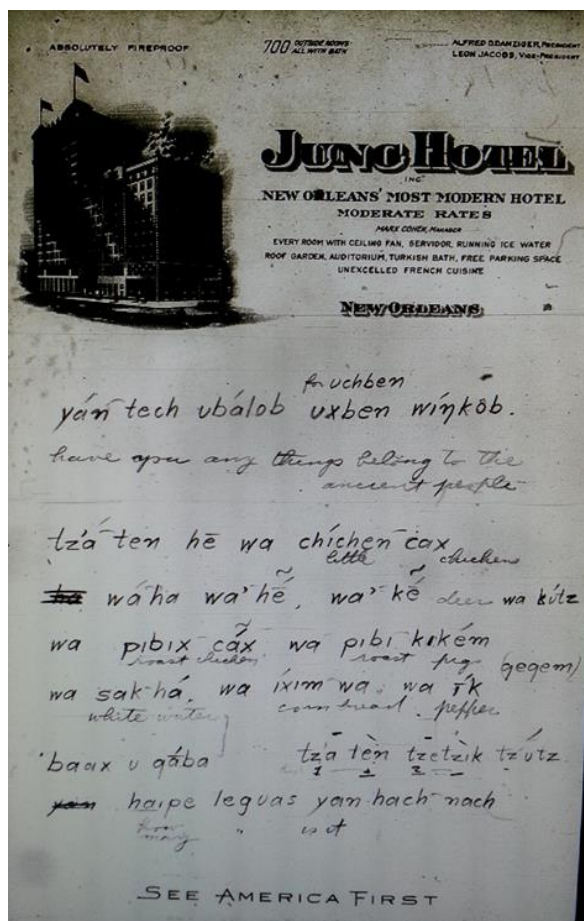 ABSOLUTELY FIREPROOF
700 OUTSIDE ROOMS ALL WITH BATH
ALFRED D. DANZIGER, PRESIDENT
LEON JACOBS, VICE-PRESIDENT
JUNG HOTEL
INC
NEW ORLEANS' MOST MODERN HOTEL
MODERATE RATES
MARK COHEN, MANAGER
EVERY ROOM WITH CEILING FAN, SERVIDOR, RUNNING ICE WATER
ROOF GARDEN, AUDITORIUM, TURKISH BATH, FREE PARKING SPACE
UNEXCELLED FRENCH CUISINE
NEW ORLEANS
for uchben
yán tech ubálob uxben wíŋkôb.
have you any things belong to the
ancient people
tz'á ten hē wa chíchen cax
little chicken
wáha wa' hẽ́, wa' kẽ́ deer wa kútz
wa pibix cax wa pibi kikém
roast chicken roast pig (qeqem)
wa sak-há, wa íxim wa, wa īk
white water corn bread pepper
baax u qába tzá tèn tzetzik tzútz
haipe leguas yan hach nach
how many " is it
SEE AMERICA FIRST